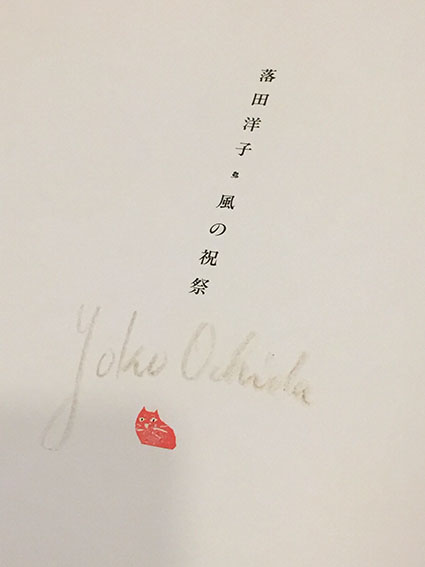 落田洋子・風の祝祭
Yoko Ochida